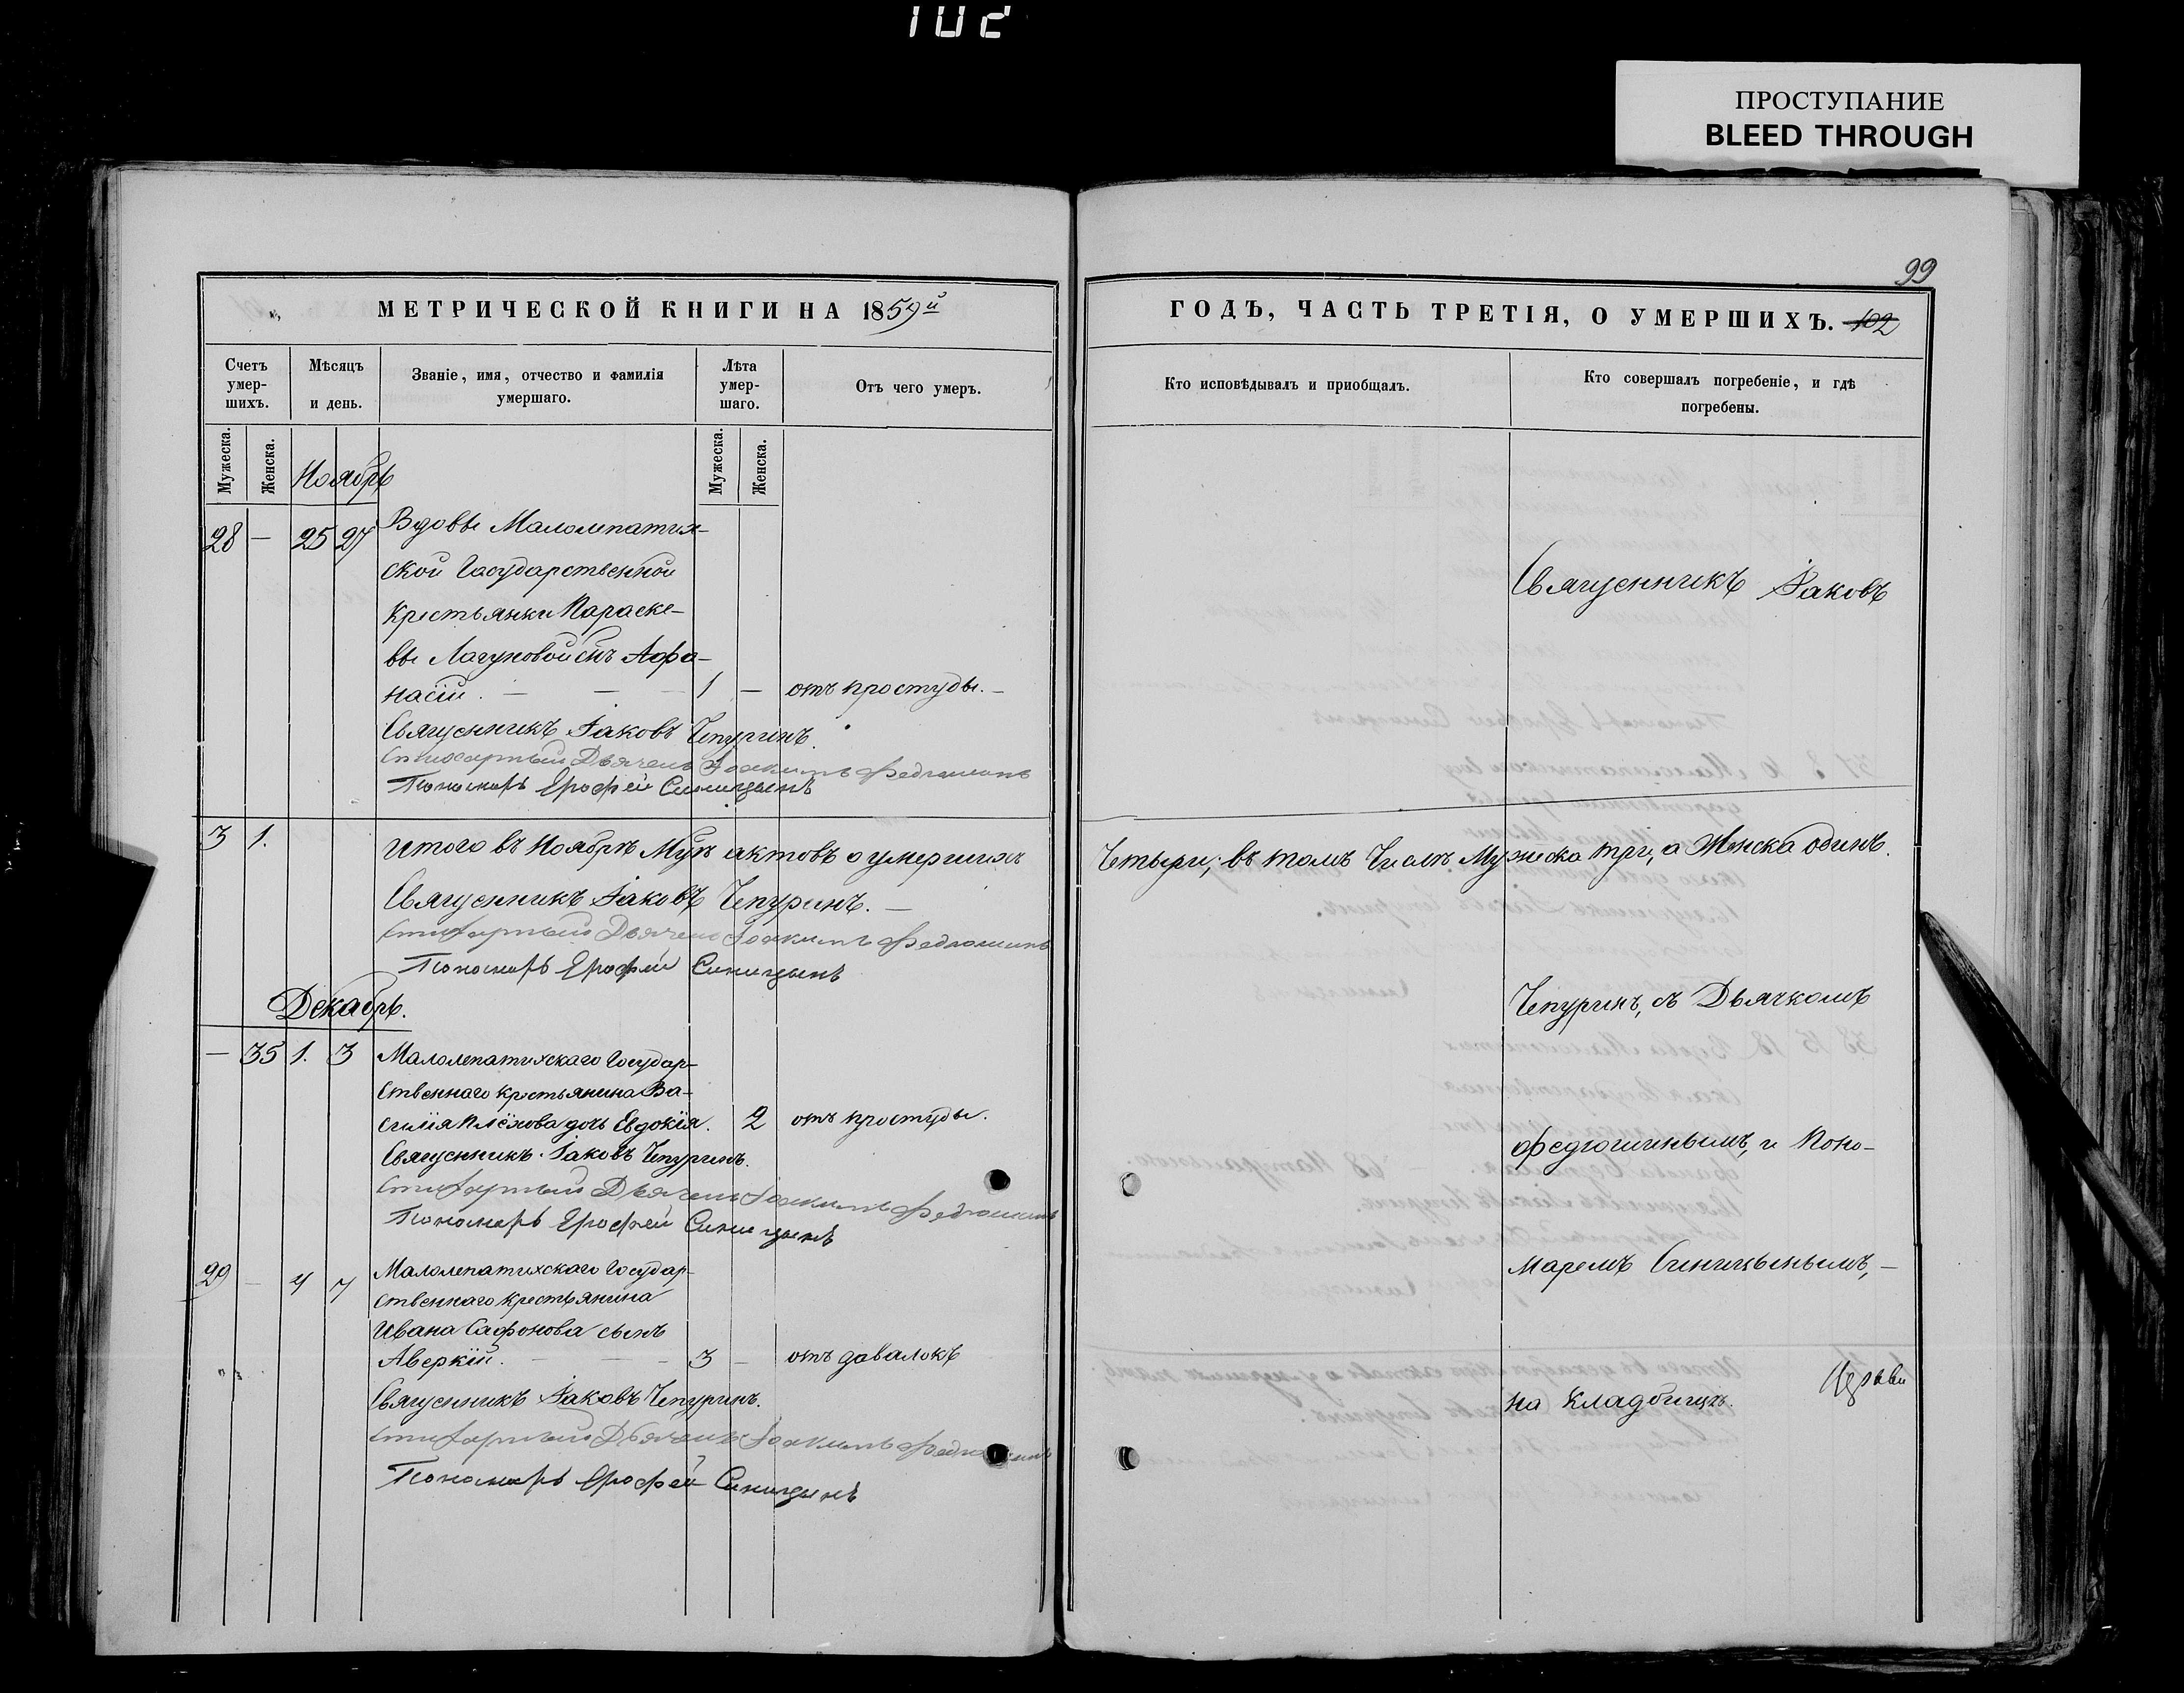 102
ПРОСТУПАНИЕ
BLEED THROUGH
99
МЕТРИЧЕСКОЙ КНИГИ НА 1859й
Счетъ умер-шихъ.
Мѣсяцъ и день.
Званіе, имя, отчество и фамилія умершаго.
Лѣта умер-шаго.
Отъ чего умеръ.
Мужеска.
Женска.
Мужеска.
Женска.
Ноябрь
28 — 25 27 Вдовы Малолепатих-
ской Государственной
крестьянки Параске-
вы Лагуновой сынъ Афа-
насій. — — — 1 — отъ простуды. —
Священникъ Іаковъ Чепуринъ.
Стихарный Дьячекъ Іоакимъ Федюшинъ
Пономарь Ерофей Синицынъ
3 1. Итого въ Ноябрѣ Мцѣ актовъ о умершихъ
Священникъ Іаковъ Чепуринъ. —
Стихарный Дьячекъ Іоакимъ Федюшинъ
Пономарь Ерофей Синицынъ
Декабрь.
— 35 1. 3 Малолепатихскаго Государ-
ственнаго крестьянина Ва-
силія Плёхова дочь Евдокія. 2 отъ простуды.
Священникъ Іаковъ Чепуринъ.
Стихарный Дьячекъ Іоакимъ Федюшинъ
Пономарь Ерофей Синицынъ
29 — 4 7 Малолепатихскаго Государ-
ственнаго крестьянина
Ивана Сафонова сынъ
Аверкій. — — — 3 — отъ давалокъ
Священникъ Іаковъ Чепуринъ.
Стихарный Дьячекъ Іоакимъ Федюшинъ
Пономарь Ерофей Синицынъ
ГОДЪ, ЧАСТЬ ТРЕТІЯ, О УМЕРШИХЪ. 102
Кто исповѣдывалъ и пріобщалъ.
Кто совершалъ погребеніе, и гдѣ погребены.
Священникъ Іаковъ
Четыри; въ томъ числѣ Мужеска три, а Женска одинъ.
Чепуринъ, съ Дьячкомъ
Федюшинымъ, и Поно-
маремъ Синицынымъ, —
на кладбищѣ.